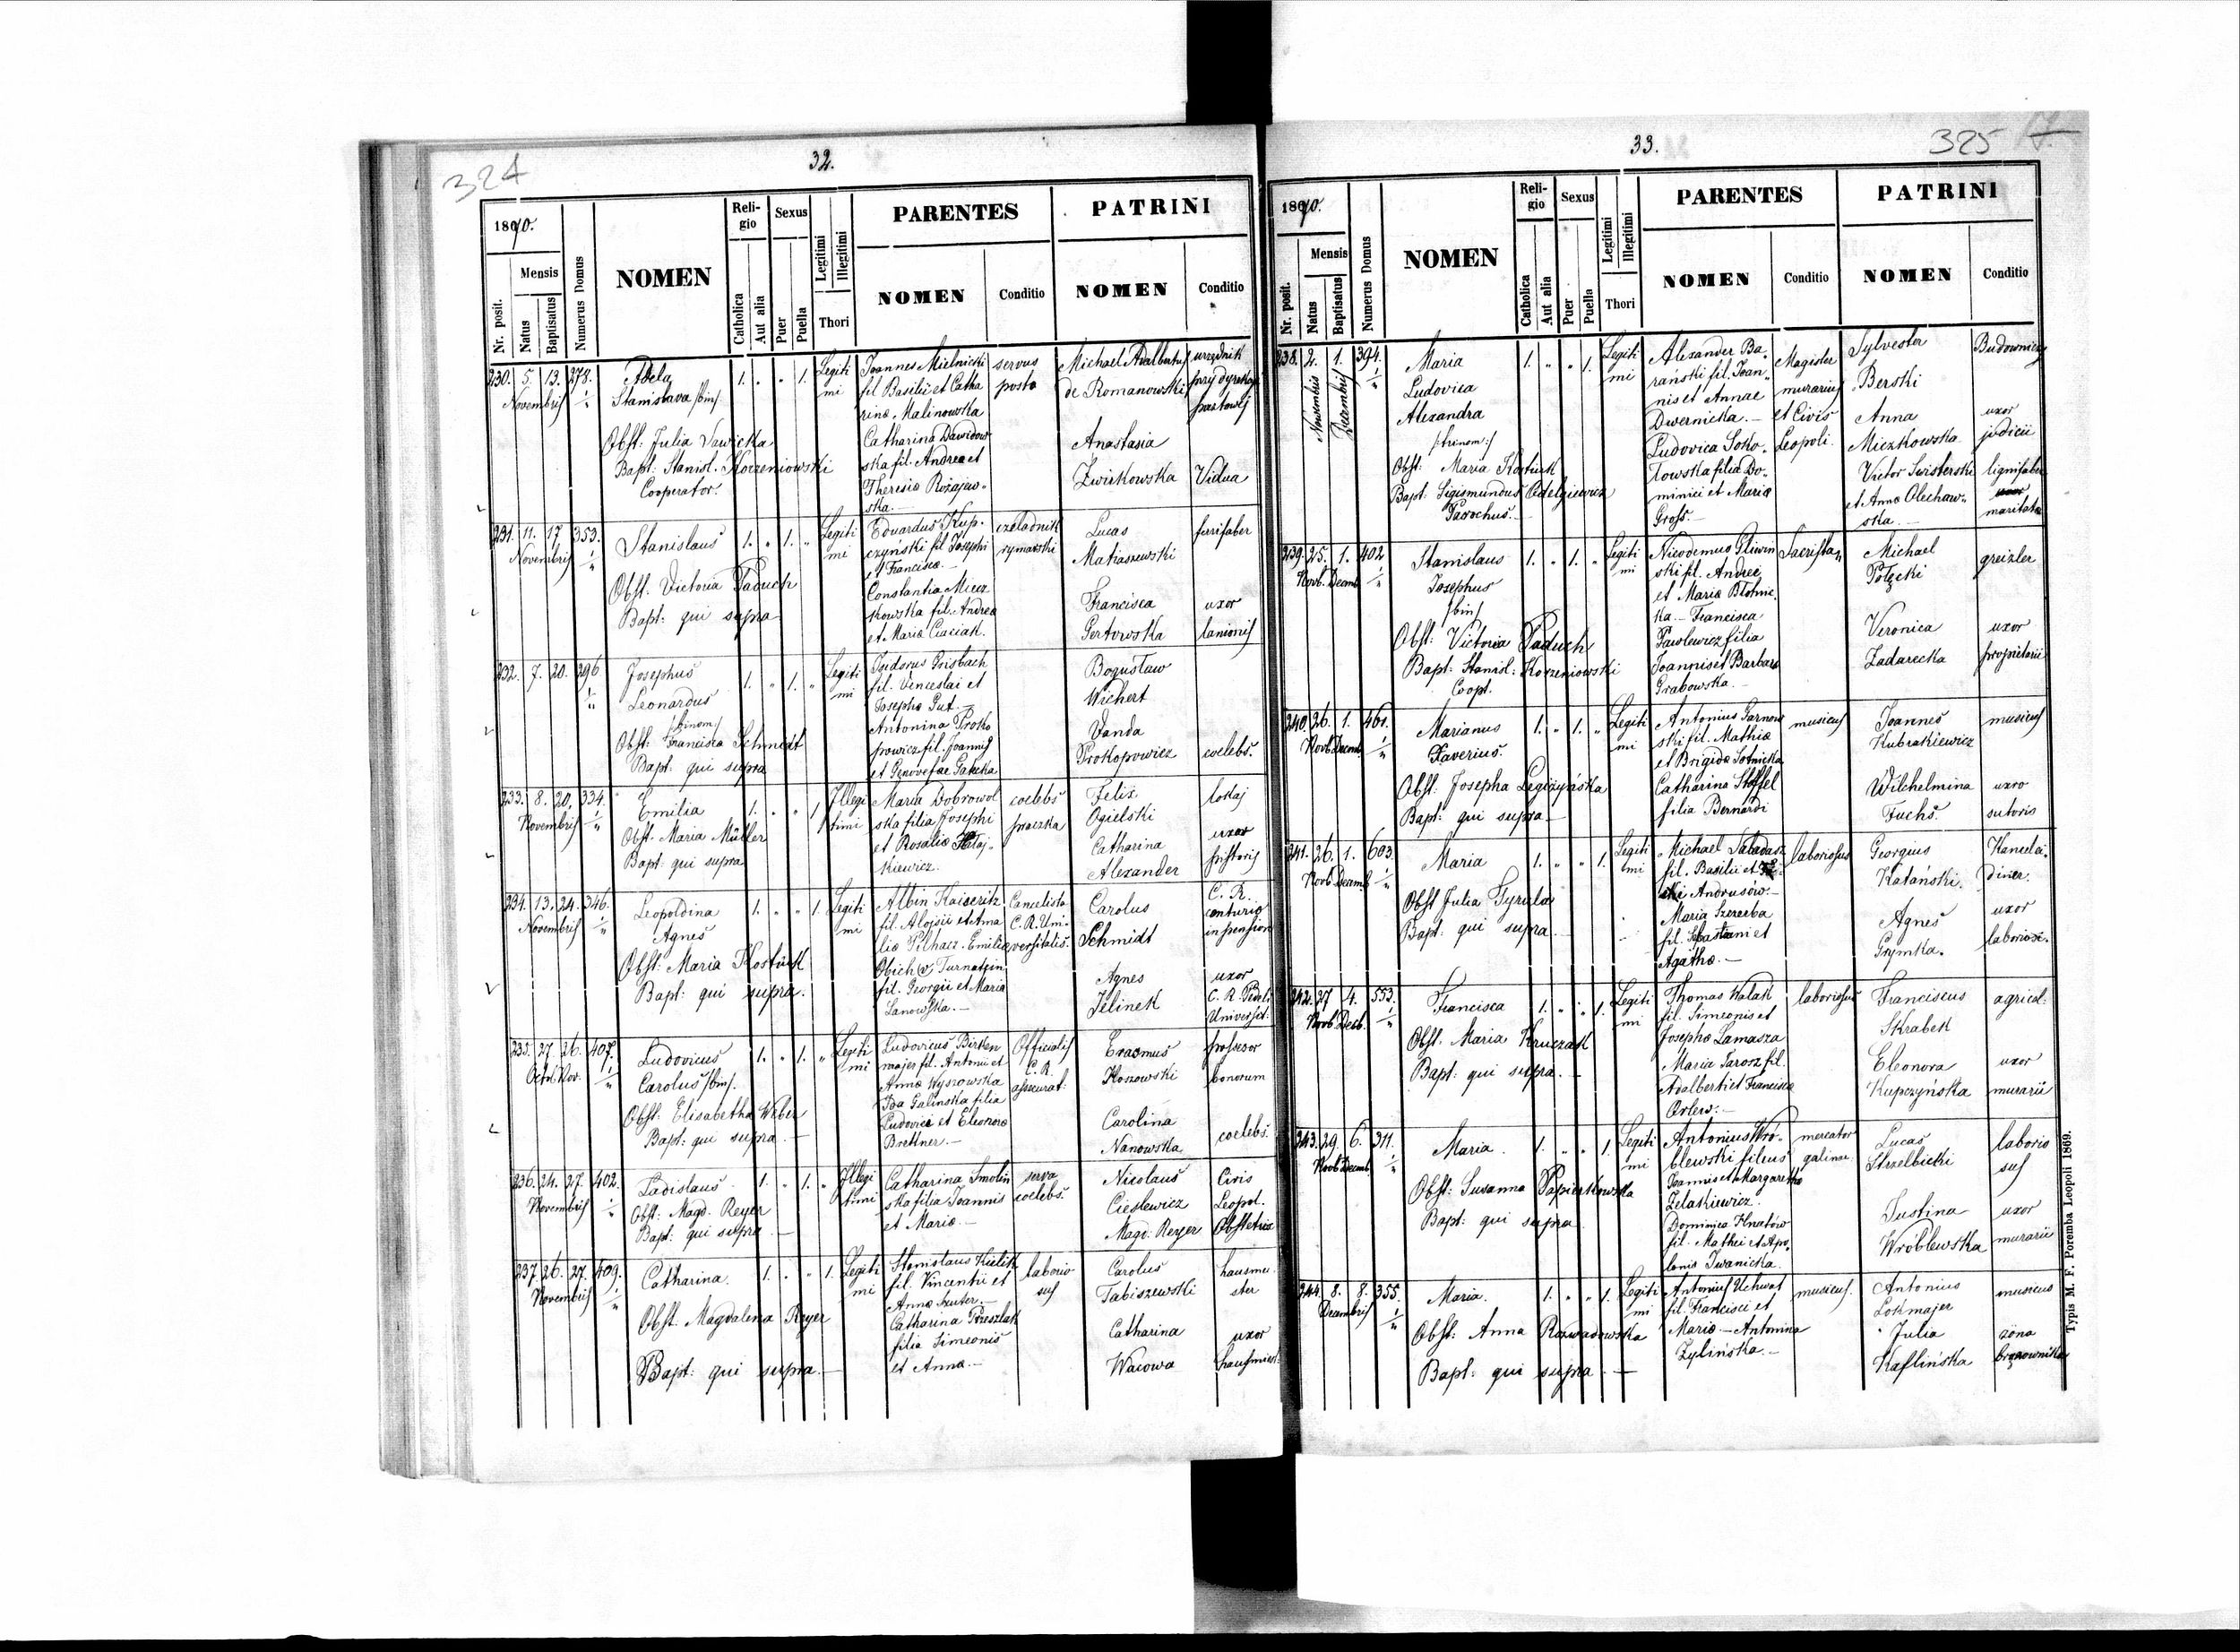 324
32.
1870.
Nr. posit.
Mensis
Natus
Baptisatus
Numerus Domus
NOMEN
Religio
Catholica
Aut alia
Sexus
Puer
Puella
Legitimi
Illegitimi
Thori
PARENTES
NOMEN
Conditio
PATRINI
NOMEN
Conditio
230. 5. 13. 278.
Novembris
Adela
Stanislava /bin/
Obst: Julia Sawicka
Bapt: Stanisl. Korzeniowski
Cooperator.
1. " " 1.
Legiti
mi
Joannes Mielnicki
fil Basilii et Catha
rina Malinowska
Catharina Dawidow
ska fil. Andrea et
Theresia Rożajew-
ska.
servus
posta
Michael Adalbertus
de Romanowski
Anastasia
Zwirkowska
urzędnik
przy dyrekcji
pocztowej
Vidua
231. 11. 17. 353.
Novembris
Stanislaus
Obst. Victoria Paduch
Bapt: qui supra
1. " 1. "
Legiti
mi
Eduardus Kup-
czyński fil Josephi
Francisca.
Constantia Miecz
kowska fil. Andrea
et Maria Ciaciak.
czeladnik
rymarski
Lucas
Matraszewski
Francisca
Gertowska
ferrifaber
uxor
lanionis
232. 7. 20. 296
Josephus
Leonardus
/binom/
Obst: Francisca Schmedt
Bapt. qui supra
1. " 1. "
Legiti
mi
Isidorus Grisbach
fil. Venceslai et
Josepha Gut.
Antonina Proko
powicz fil. Joannis
et Genovefae
Bogusław
Wichert
Vanda
Prokopowicz
coelebs.
233. 8. 20. 334.
Novembris
Emilia
Obst. Maria Müller
Bapt. qui supra
1. " " 1
Illegi
timi
Maria Dobrowol
ska filia Josephi
et Rosalia
kiewicz.
coelebs
praczka
Felix
Ogielski
Catharina
Alexander
lokaj
uxor
pistoris
234. 13. 24. 346.
Novembris
Leopoldina
Agnes
Obst: Maria Kostiuk
Bapt: qui supra.
1. " " 1
Legiti
mi
Albin Kaiseritz
fil. Aloisii et Ama
lia Pelharz. Emilia
Obich v Turnstein
fil. Georgii et Maria
Lanowska.
Cancelista
C. R. Uni-
versitatis.
Carolus
Schmidt
Agnes
Jelinek
C. R.
centurio
in pension
uxor
C. R. Pedel:
Universit:
235. 27. 26. 407.
Octob. Nov.
Ludovicus
Carolus /bin/.
Obst: Elisabetha Weber
Bapt: qui supra
1. " 1. "
Legiti
mi
Ludovicus Birken
majer fil. Antonii et
Anna Wyszowska
Ida Galinska filia
Ludovici et Eleonora
Brettner.
Officialis
C. R.
assecurat:
Erasmus
Kossowski
Carolina
Nanowska
possessor
bonorum
coelebs.
236. 24. 27. 402.
Novembris
Ladislaus
Obst: Magd. Reyer
Bapt: qui supra
1. " 1. "
Illegi
timi
Catharina Smolin
ska filia Joannis
et Maria.
serva
coelebs.
Nicolaus
Cieslewicz
Magd: Reyer
Civis
Leopol.
Obstetrix
237. 26. 27. 409.
Novembris
Catharina.
Obst. Magdalena Reyer
Bapt: qui supra.
1. " " 1
Legiti
mi
Stanislaus Kielitz
fil. Vincentii et
Anna Szuter.
Catharina Preszlak
filia Simeonis
et Anna.
laborio
sus
Carolus
Tabiszewski
Catharina
Wacowa
hausmei
ster
uxor
hausmeist
325
33.
1870.
Nr. posit.
Mensis
Natus
Baptisatus
Numerus Domus
NOMEN
Religio
Catholica
Aut alia
Sexus
Puer
Puella
Legitimi
Illegitimi
Thori
PARENTES
NOMEN
Conditio
PATRINI
NOMEN
Conditio
238. 2. 1. 394.
Novembris
Decembris
Maria
Ludovica
Alexandra
/trinom:/
Obst: Maria Kostiuk
Bapt: Sigismundus Odelgiewicz
Parochus.
1. " " 1.
Legiti
mi
Alexander Ba-
rański fil. Joan-
nis et Annae
Dwernicka.
Ludovica Soko-
łowska filia Do-
minici et Maria
Gross.
Magister
murarius
et Civis
Leopoli.
Sylvester
Berski
Anna
Mieczkowska
Victor Swisterski
et Anna Olechaw-
ska
Budowniczy
uxor
judicii
lignifaber
maritata
239. 25. 1. 402
Novb. Decemb.
Stanislaus
Josephus
/bin/
Obst: Victoria Paduch
Bapt: Stanisl: Korzeniowski
Coopt.
1. " 1. "
Legiti
mi
Nicodemus Gliwin
ski fil. Andrei
et Maria Błotnic.
ka - Francisca
Pawlewicz filia
Joannis et Barbara
Grabowska.
Sacristan
Michael
Połęcki
Veronica
Zadarecka
greizler
uxor
proprietarii
240. 26. 1. 461.
Novb. Decemb.
Marianus
Xaverius.
Obst: Josepha Legczyńska
Bapt: qui supra
1. " 1. "
Legiti
mi
Antonius Tarnow
ski fil. Mathia
et Brigida Sotnicka
Catharina Stoffel
filia Bernardi
musicus
Joannes
Kubrakiewicz
Wilhelmina
Fuchs.
musicus
uxor
sutoris
241. 26. 1. 603.
Novb. Decemb.
Maria
Obst Julia Gyrula
Bapt: qui supra
1. " " 1.
Legiti
mi
Michael Saładasz
fil. Basilii et
Andrusów.
Maria Szczerba
fil. Sebastiani et
Agatha.
laboriosus
Georgius
Katański.
Agnes
Grymka.
Kancelei.
diner.
uxor
laboriosi.
242. 27. 4. 553.
Novb. Decb.
Francisca
Obst. Maria Kruczak
Bapt: qui supra.
1. " " 1.
Legiti
mi
Thomas Walak
fil. Simeonis et
Josepha Lamasza
Maria Jarosz fil.
Adalberti et Francisca
Orlew.
laboriosus
Franciscus
Skrabek
Eleonora
Kupczyńska
agricol:
uxor
murarii
243. 29. 6. 311.
Novb. Decemb.
Maria.
Obst: Susanna Papierkowska
Bapt: qui supra
1. " " 1.
Legiti
mi
Antonius Wró-
blewski filius
Joannis et Margaretha
Zelaskiewicz.
Dominica Hnatów
fil. Mathei et Apo-
lonia Iwanicka.
mercator
galinar.
Lucas
Strzelbicki
Justina
Wróblewska
laborio
sus
uxor
murarii
244. 8. 8. 355.
Decembris
Maria.
Obst: Anna Rozwadowska
Bapt: qui supra
1. " " 1.
Legiti
mi
Antonius Uchwat
fil. Francisci et
Maria - Antonina
Zylińska.
musicus.
Antonius
Lokmajer
Julia
Kaflińska
musicus
żona
brązownika
Typis M. F. Poremba Leopoli 1869.